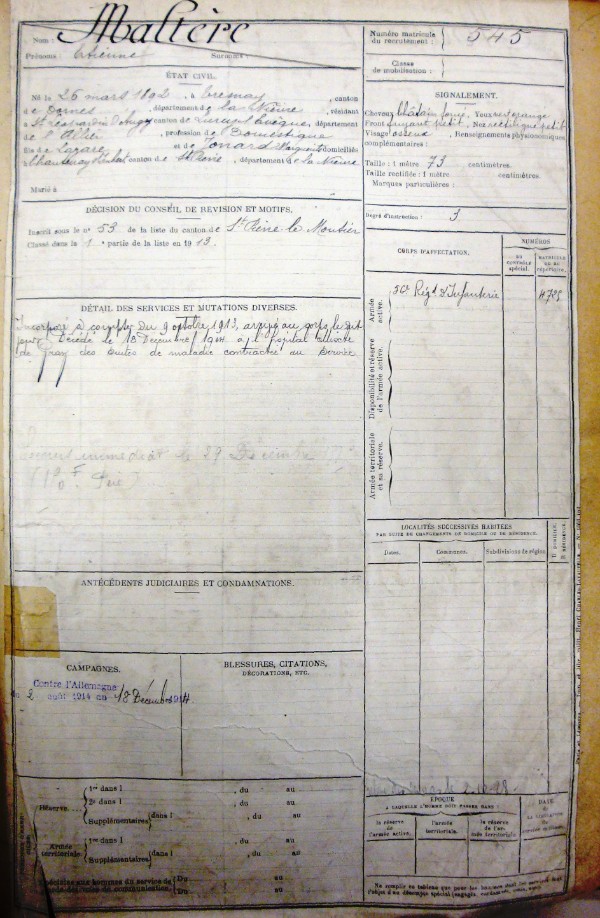 Nom : Maltère
Prénoms : Etienne Surnoms :
Numéro matricule
du recrutement : 545
Classe
de mobilisation :
ÉTAT CIVIL.
Né le 26 mars 1892, à Tresnay, canton
de Dornes, département de la Nièvre, résidant
canton de Lurcy-Lévy, département
de l'Allier, profession de Domestique
fils de Lazare et de Jonard domiciliés
à Chantenay St Imbert canton de St Pierre, département de la Nièvre
Marié à
SIGNALEMENT.
Cheveux châtain foncé. Yeux
Front fuyant petit. Nez rectiligne petit
Visage osseux. Renseignements physionomiques
complémentaires :
Taille : 1 mètre 73 centimètres.
Taille rectifiée : 1 mètre centimètres.
Marques particulières :
Degré d'instruction : 3
DÉCISION DU CONSEIL DE REVISION ET MOTIFS.
Inscrit sous le n° 53 de la liste du canton de St Pierre le Moutier
Classé dans la 1e partie de la liste en 1913.
CORPS D'AFFECTATION.
NUMÉROS
AU
CONTRÔLE
spécial.
MATRICULE
OU AU
répertoire.
Armée
active.
Régt d'Infanterie
4785
Disponibilité et réserve
de l'armée active.
Armée territoriale
et sa réserve.
DÉTAIL DES SERVICES ET MUTATIONS DIVERSES.
Incorporé à compter du 9 octobre 1913, arrivé au corps le dit
jour. Décédé le 18 Décembre 1914 à l'hôpital
de Gray des suites de maladie contractée au service
Secours immédiat le 29 Décembre
(150 F. Père)
LOCALITÉS SUCCESSIVES HABITÉES
PAR SUITE DE CHANGEMENTS DE DOMICILE OU DE RÉSIDENCE.
Dates.
Communes.
Subdivisions de région.
D. DOMICILE.
R. RÉSIDENCE.
ANTÉCÉDENTS JUDICIAIRES ET CONDAMNATIONS.
CAMPAGNES.
Contre l'Allemagne
du 2 août 1914 au 18 Décembre 1914
BLESSURES, CITATIONS,
DÉCORATIONS, ETC.
Réserve
1re dans l , du au
2e dans l , du au
Supplémentaires dans l , du au
Armée
territoriale.
1re dans l , du au
Supplémentaires dans l , du au
Spéciales aux hommes du service de
garde des voies de communication. Du au
Du au
ÉPOQUE
A LAQUELLE L'HOMME DOIT PASSER DANS :
la réserve
de l'armée active.
l'armée
territoriale.
la réserve
de l'armée territoriale
DATE
DE
LA LIBÉRATION
DU
service militaire.